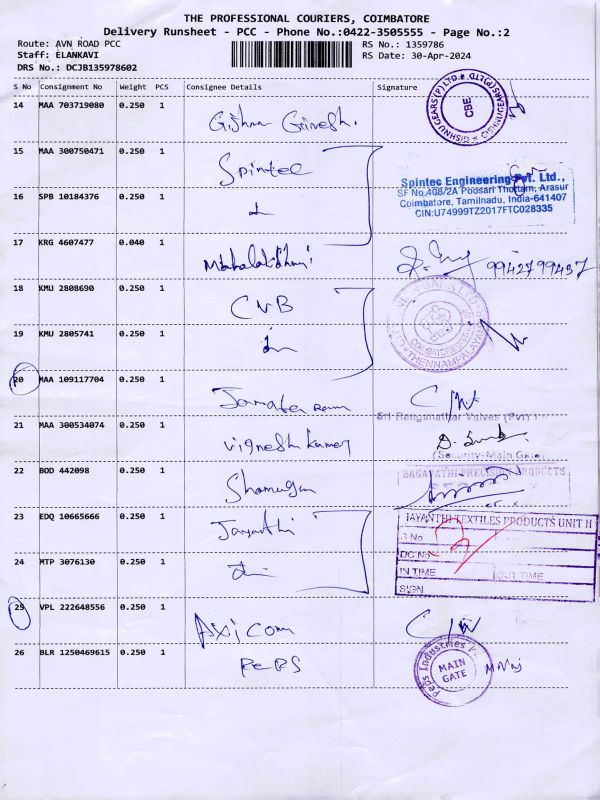 THE PROFESSIONAL COURIERS, COIMBATORE
Delivery Runsheet - PCC - Phone No.:0422-3505555 - Page No.:2
Route: AVN ROAD PCC
RS No.: 1359786
Staff: ELANKAVI
RS Date: 30-Apr-2024
DRS No.: DCJB135978602
S No Consignment No Weight PCS Consignee Details Signature
14 MAA 703719080 0.250 1
CBE
15 MAA 300750471 0.250 1 Spintec
Spintec Engineering Pvt. Ltd.,
SF No,408/2A Poosari Thottam, Arasur
Coimbatore, Tamilnadu, India-641407
CIN:U74999TZ2017FTC028335
16 SPB 10184376 0.250 1
17 KRG 4607477 0.040 1
9942799437
18 KMU 2808690 0.250 1 CVB
19 KMU 2805741 0.250 1
20 MAA 109117704 0.250 1
Sri Ranganathar Valves (Pvt)
21 MAA 300534074 0.250 1 Vignesh Kumar
(Security-Main Gate)
22 BOD 442098 0.250 1 Shamugam
SAGAYATHI PRECISION PRODUCTS
23 EDQ 10665666 0.250 1 Jayanthi
JAYANTHI TEXTILES PRODUCTS UNIT II
S No
DC No
24 MTP 3076130 0.250 1
IN TIME OUT TIME
SIGN
25 VPL 222648556 0.250 1 Axicom C/W
26 BLR 1250469615 0.250 1 PEPS
Peps Industries P.
MAIN
GATE